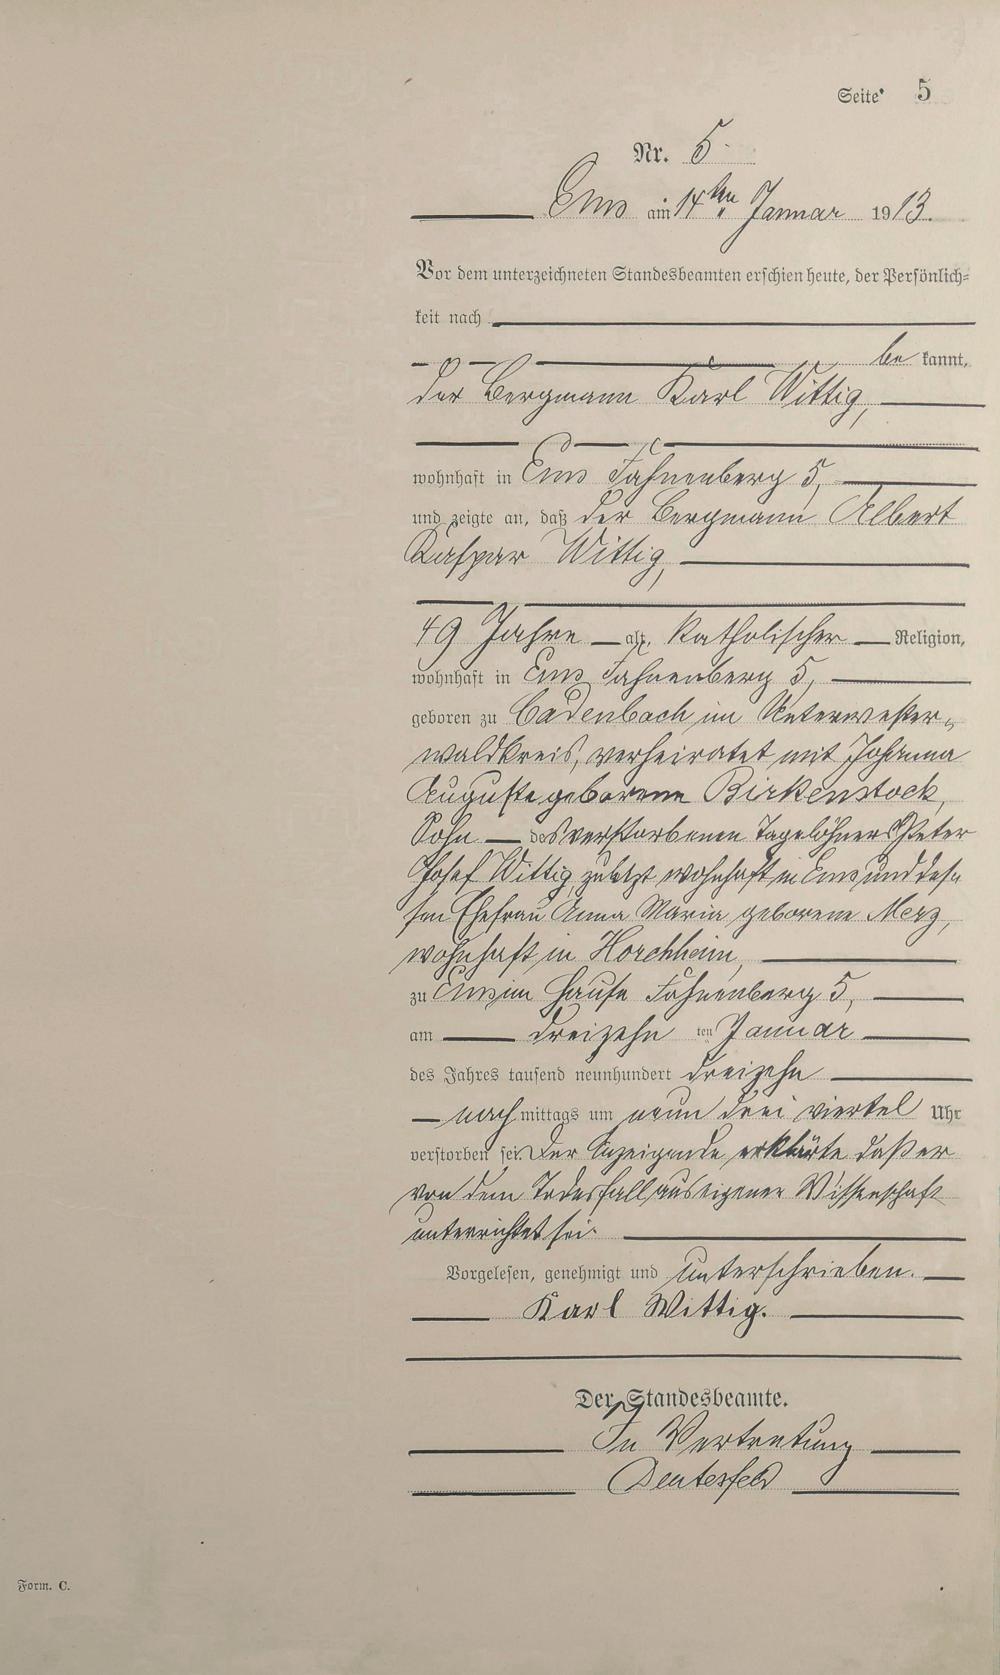 Seite 5
Nr. 5
Ems am 14ten Januar 1913.
Vor dem unterzeichneten Standesbeamten erschien heute, der Persönlich=
keit nach
be kannt,
der Bergmann Karl Wittig,
wohnhaft in Ems Fahnenberg 5,
und zeigte an, daß der Bergmann Albert
Kaspar Wittig,
49 Jahre alt, katholischer Religion,
wohnhaft in Ems Fahnenberg 5,
geboren zu Cadenbach im Unterwester-
waldkreis, verheiratet mit Johanna
Auguste geborene Birkenstock,
Sohn des verstorbenen Tagelöhners Peter
Josef Wittig, zuletzt wohnhaft in Ems und des-
sen Ehefrau Anna Maria geborene Merz,
wohnhaft in Horchheim,
zu Ems im Hause Fahnenberg 5,
am dreizehn ten Januar
des Jahres tausend neunhundert dreizehn
nach mittags um neun drei viertel Uhr
verstorben sei. Der Anzeigende erklärte daß er
von dem Todesfall aus eigener Wissenschaft
unterrichtet sei.
Vorgelesen, genehmigt und unterschrieben.
Karl Wittig.
Der Standesbeamte.
In Vertretung
Form. C.